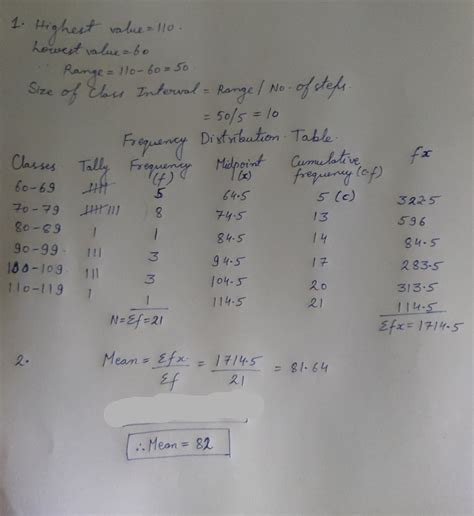 1. Highest value = 110.
Lowest value = 60
∴ Range = 110 - 60 = 50
Size of Class Interval = Range / No. of steps
= 50/5 = 10
Frequency Distribution Table.
Classes Tally Frequency (f) Midpoint (x) Cumulative frequency (c.f) fx
60-69 𝍸 5 64.5 5 (c) 322.5
70-79 𝍸 III 8 74.5 13 596
80-89 I 1 84.5 14 84.5
90-99 III 3 94.5 17 283.5
100-109 III 3 104.5 20 313.5
110-119 I 1 114.5 21 114.5
N = Σf = 21 Σfx = 1714.5
2. Mean = Σfx / Σf = 1714.5 / 21 = 81.64
∴ Mean = 82